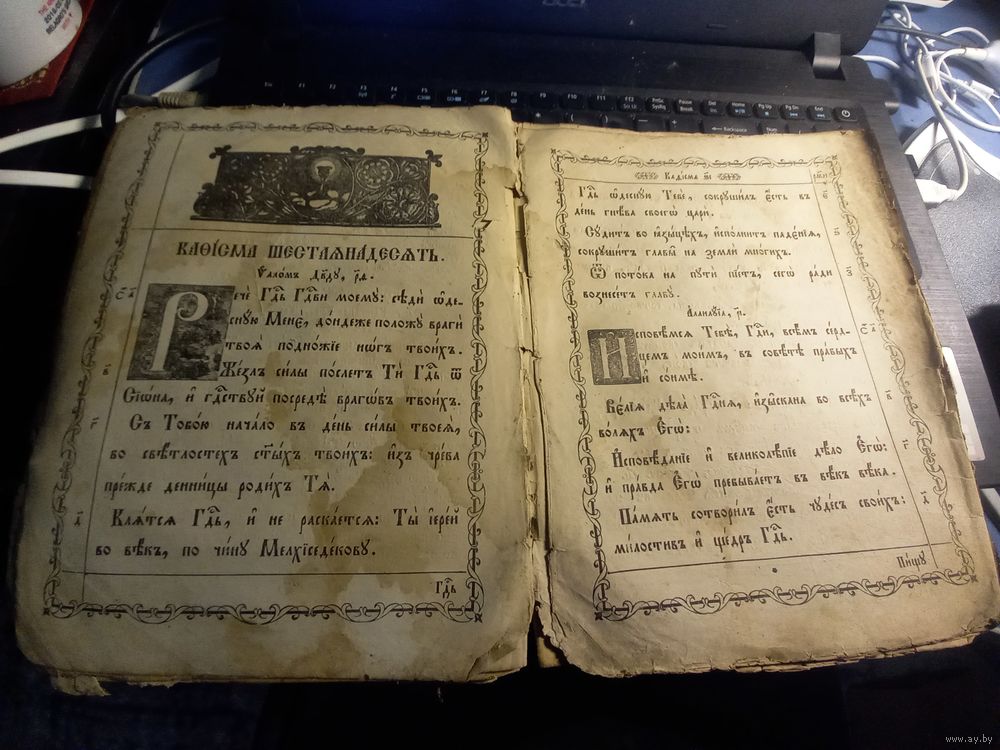 КАѲІСМА ШЕСТАЯНАДЕСЯТЬ.
Ѱалѡ́мъ Дв҃ду, р҃ѳ.
Рече́ Гдⷭ҇ь Гдⷭ҇ви моемꙋ̀: сѣдѝ ѡ҆де-
сную Менѐ, до́ндеже положꙋ̀ врагѝ
твоя̑ подно́жїе но́гъ твои́хъ.
Же́злъ си́лы по́слетъ Тѝ Гдⷭ҇ь ѿ
Сїѡ́на, и҆ гдⷭ҇ствꙋй посредѣ̀ врагѡ́въ твои́хъ.
Съ Тобо́ю нача́ло въ де́нь си́лы твоея̀,
во свѣ́тлостехъ ст҃ы́хъ твои́хъ: и҆зъ чре́ва
пре́жде денни́цы роди́хъ Тѧ̀.
Кля́тся Гдⷭ҇ь, и҆ не раска́ется: Ты̀ і҆ере́й
во вѣ́къ, по чи́нꙋ Мелхїседе́ковꙋ.
Гдⷭ҇ь
Каѳісма
Гдⷭ҇ь ѡ҆деснꙋ́ю Тебѐ, сокрꙋши́лъ є҆́сть въ
де́нь гнѣ́ва своегѡ̀ цари̑.
Сꙋ́дитъ во ꙗ҆зы́цѣхъ, и҆спо́лнитъ паде́нїя,
сокрꙋши́тъ главы̑ на землѝ мно́гихъ.
Ѿ пото́ка на пꙋтѝ пїе́тъ, сегѡ̀ ра́ди
вознесе́тъ главꙋ̀.
Аллилꙋ́їа, р҃і.
И҆сповѣ́мся Тебѣ̀, Гдⷭ҇и, всѣ́мъ се́рд-
цемъ мои́мъ, въ совѣ́тѣ пра́выхъ
и҆ со́нмѣ.
Вє́лїя дѣла̀ Гдⷭ҇ня, и҆зы́скана во всѣ́хъ
во́ляхъ Є҆гѡ̀:
И҆сповѣ́данїе и҆ великолѣ́пїе дѣ́ло Є҆гѡ̀:
и҆ пра́вда Є҆гѡ̀ пребыва́етъ въ вѣ́къ вѣ́ка.
Па́мять сотвори́лъ є҆́сть чꙋде́съ свои́хъ:
ми́лостивъ и҆ ще́дръ Гдⷭ҇ь.
Пи́щꙋ
www.ay.by